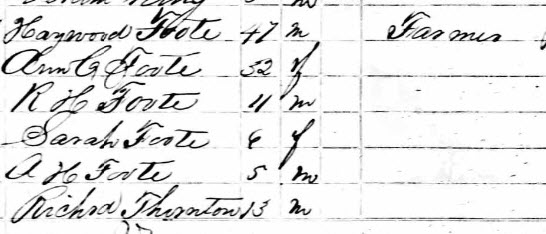 Haywood Foote 47 m Farmer
Ann G Foote 32 f
R H Foote 11 m
Sarah Foote 6 f
A H Foote 5 m
Richd Thornton 13 m